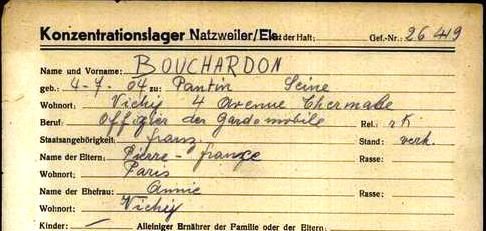 Konzentrationslager Natzweiler/Els. Art der Haft: Gef.-Nr.: 26 419
Name und Vorname: BOUCHARDON
geb.: 4-7. 04 zu: Pantin Seine
Wohnort: Vichy 4 Avenue Thermale
Beruf: Offizier der Gardemobile Rel.: rk
Staatsangehörigkeit: franz. Stand: verh.
Name der Eltern: Pierre - Rasse:
Wohnort: Paris
Name der Ehefrau: Annie Rasse:
Wohnort: Vichy
Kinder: — Alleiniger Ernährer der Familie oder der Eltern: